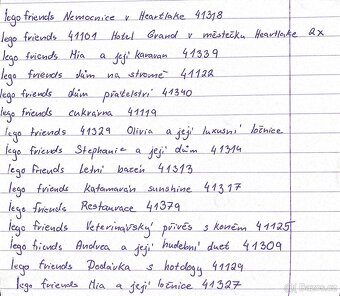 lego friends Nemocnice v Heartlake 41318
lego friends 41101 Hotel Grand v městečku Heartlake 2x
lego friends Mia a její karavan 41339
lego friends dům na stromě 41122
lego friends dům přátelství 41340
lego friends cukrárna 41119
lego friends 41329 Olivia a její luxusní ložnice
lego friends Stephanie a její dům 41314
lego friends Letní bazén 41313
lego friends Katamaran sunshine 41317
lego friends Restaurace 41379
lego friends Veterinářský přívěs s koněm 41125
lego friends Andrea a její hudební duet 41309
lego friends Dodávka s hotdogy 41129
lego friends Mia a její ložnice 41327